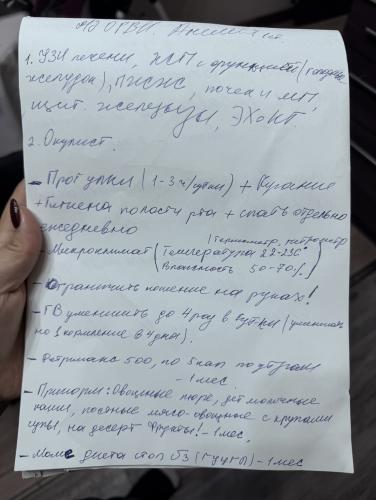 на ОРВИ.
1. УЗИ печени, ЖП с функцией (
желудка), ПЖЖ, почек и МП,
щит. железы, ЭХоКГ.
2. Окулист.
- Прогулки (1-3 ч/сутки) + Купание
+ Гигиена полости рта + спать отдельно
ежедневно
/термометр, гигрометр
- Микроклимат (Температура 22-23С°
Влажность 50-70%)
- Ограничить ношение на руках!
- ГВ уменьшить до 4 раз в сутки (уменьшать
по 1 кормление в 4 дня).
- Детримакс 500, по 5 кап по утрам
- 1 мес.
- Прикорм: Овощные пюре, безмолочные
каши, постные мясо-овощные с крупами
супы, на десерт Фрукты! - 1 мес.
- Маме диета стол √3 () - 1 мес